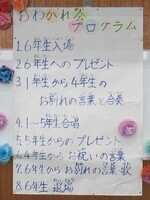 おわかれ会
プログラム
1.6年生入場
2.6年生へのプレゼント
3.1年生から4年生の
お別れの言葉と合奏
4.1～5年生合唱
5.5年生からのプレゼント
6.4年生からお祝いの言葉
7.6年生からお別れの言葉・歌
8.6年生 退場